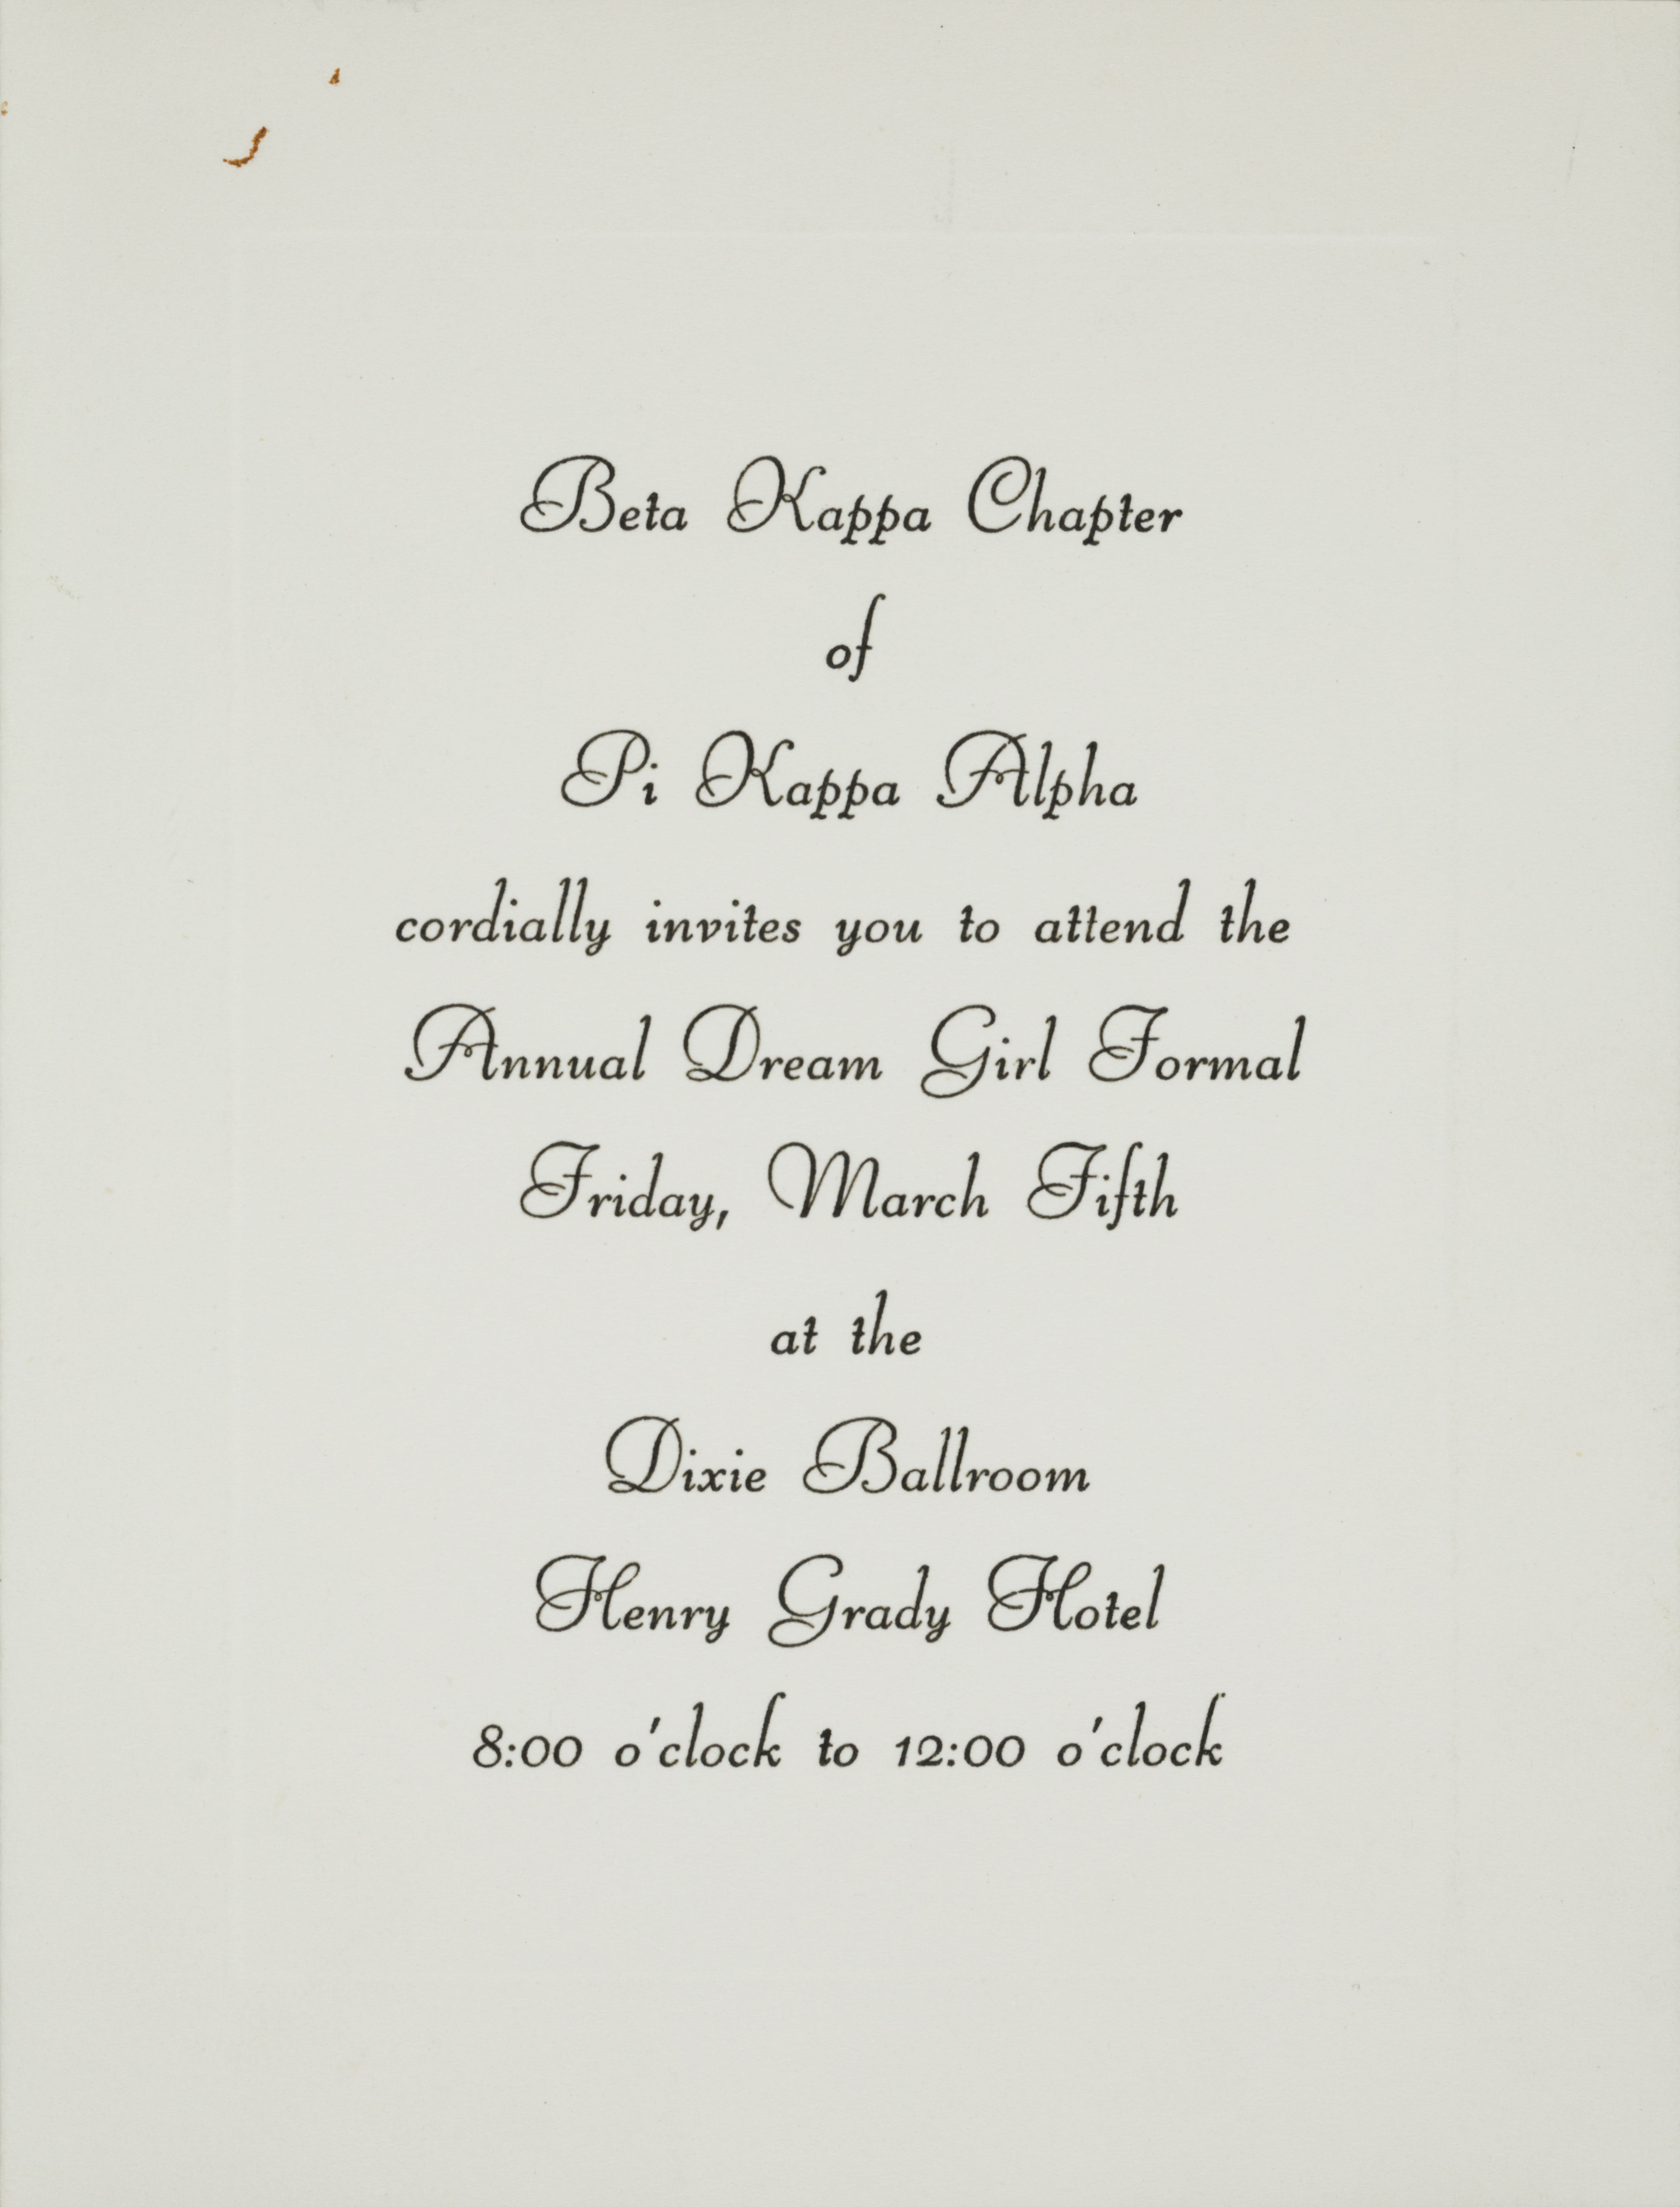 Beta Kappa Chapter
of
Pi Kappa Alpha
cordially invites you to attend the
Annual Dream Girl Formal
Friday, March Fifth
at the
Dixie Ballroom
Henry Grady Hotel
8:00 o'clock to 12:00 o'clock